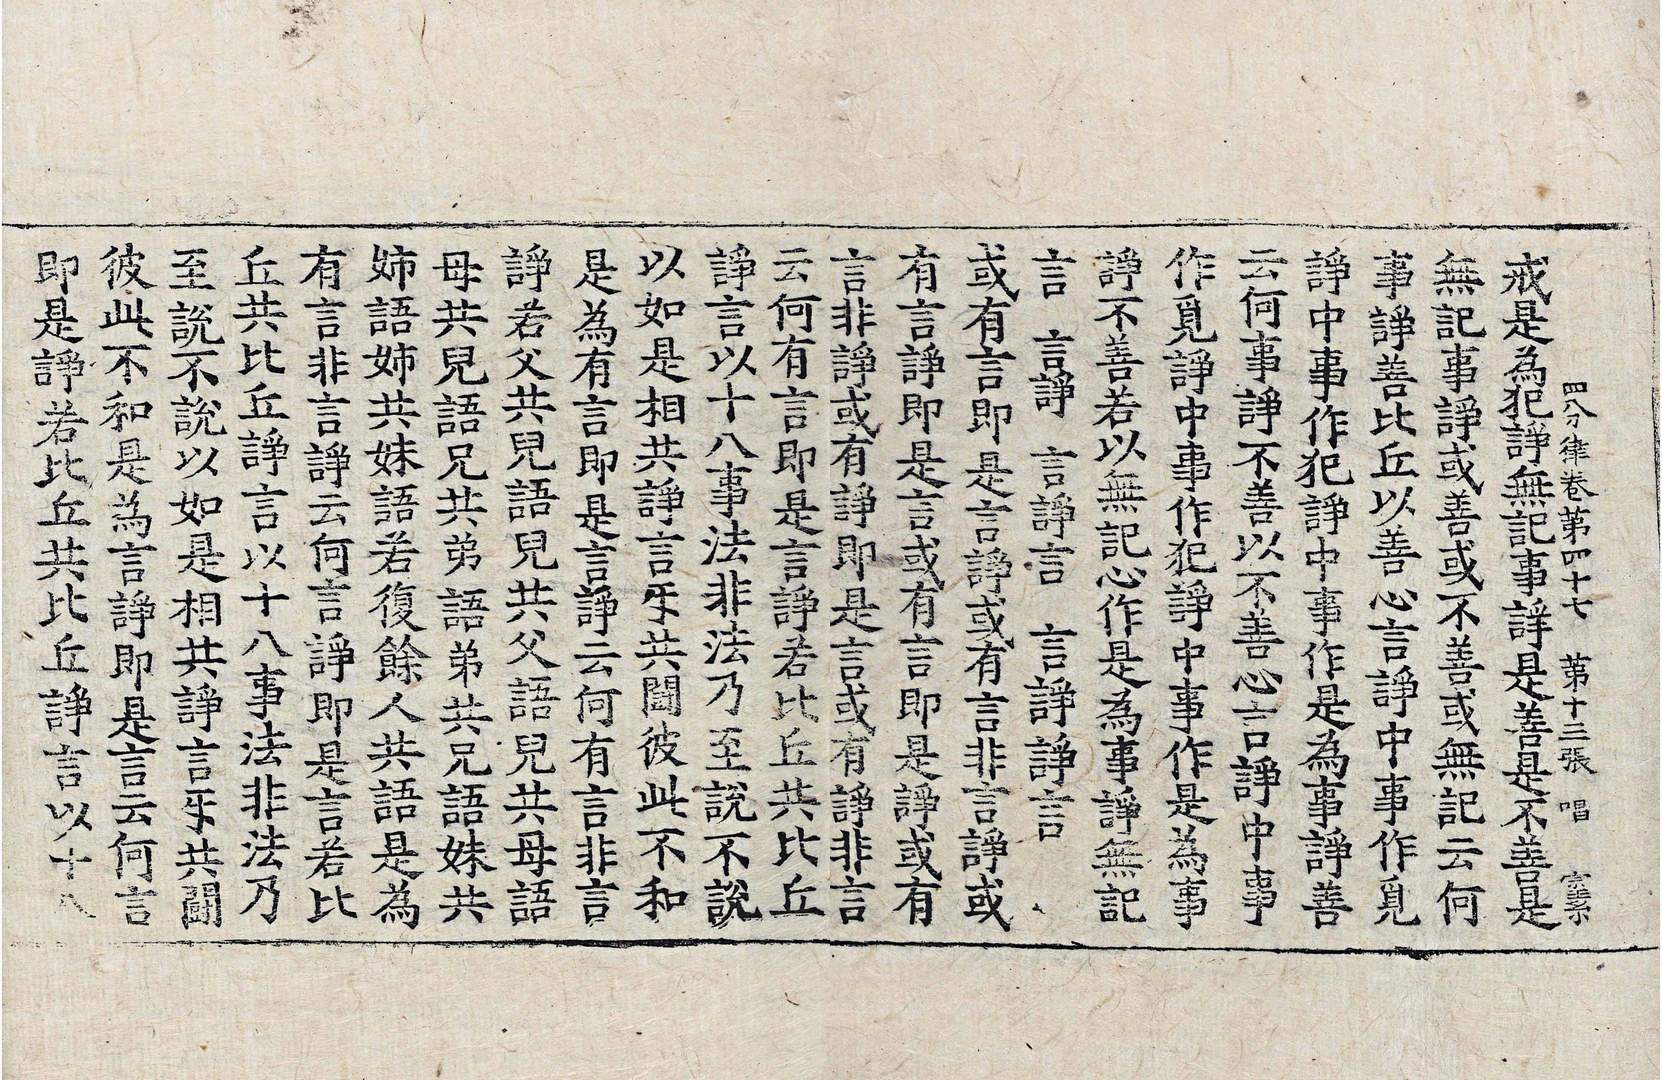 四分律卷第四十七 第十三張 唱
戒是為犯諍無記事諍是善是不善是
無記事諍或善或不善或無記云何
事諍善比丘以善心言諍中事作覓
諍中事作犯諍中事作是為事諍善
云何事諍不善以不善心言諍中事
作覓諍中事作犯諍中事作是為事
諍不善若以無記心作是為事諍無記
言 言諍 言諍言 言諍諍言
或有言即是言諍或有言非言諍或
有言諍即是言或有言即是諍或有
言非諍或有諍即是言或有諍非言
云何有言即是言諍若比丘共比丘
諍言以十八事法非法乃至說不說
以如是相共諍言牙共鬪彼此不和
是為有言即是言諍云何有言非言
諍若父共兒語兒共父語兒共母語
母共兒語兄共弟語弟共兄語妹共
姉語姉共妹語若復餘人共語是為
有言非言諍云何言諍即是言若比
丘共比丘諍言以十八事法非法乃
至說不說以如是相共諍言牙共鬪
彼此不和是為言諍即是言云何言
即是諍若比丘共比丘諍言以十八